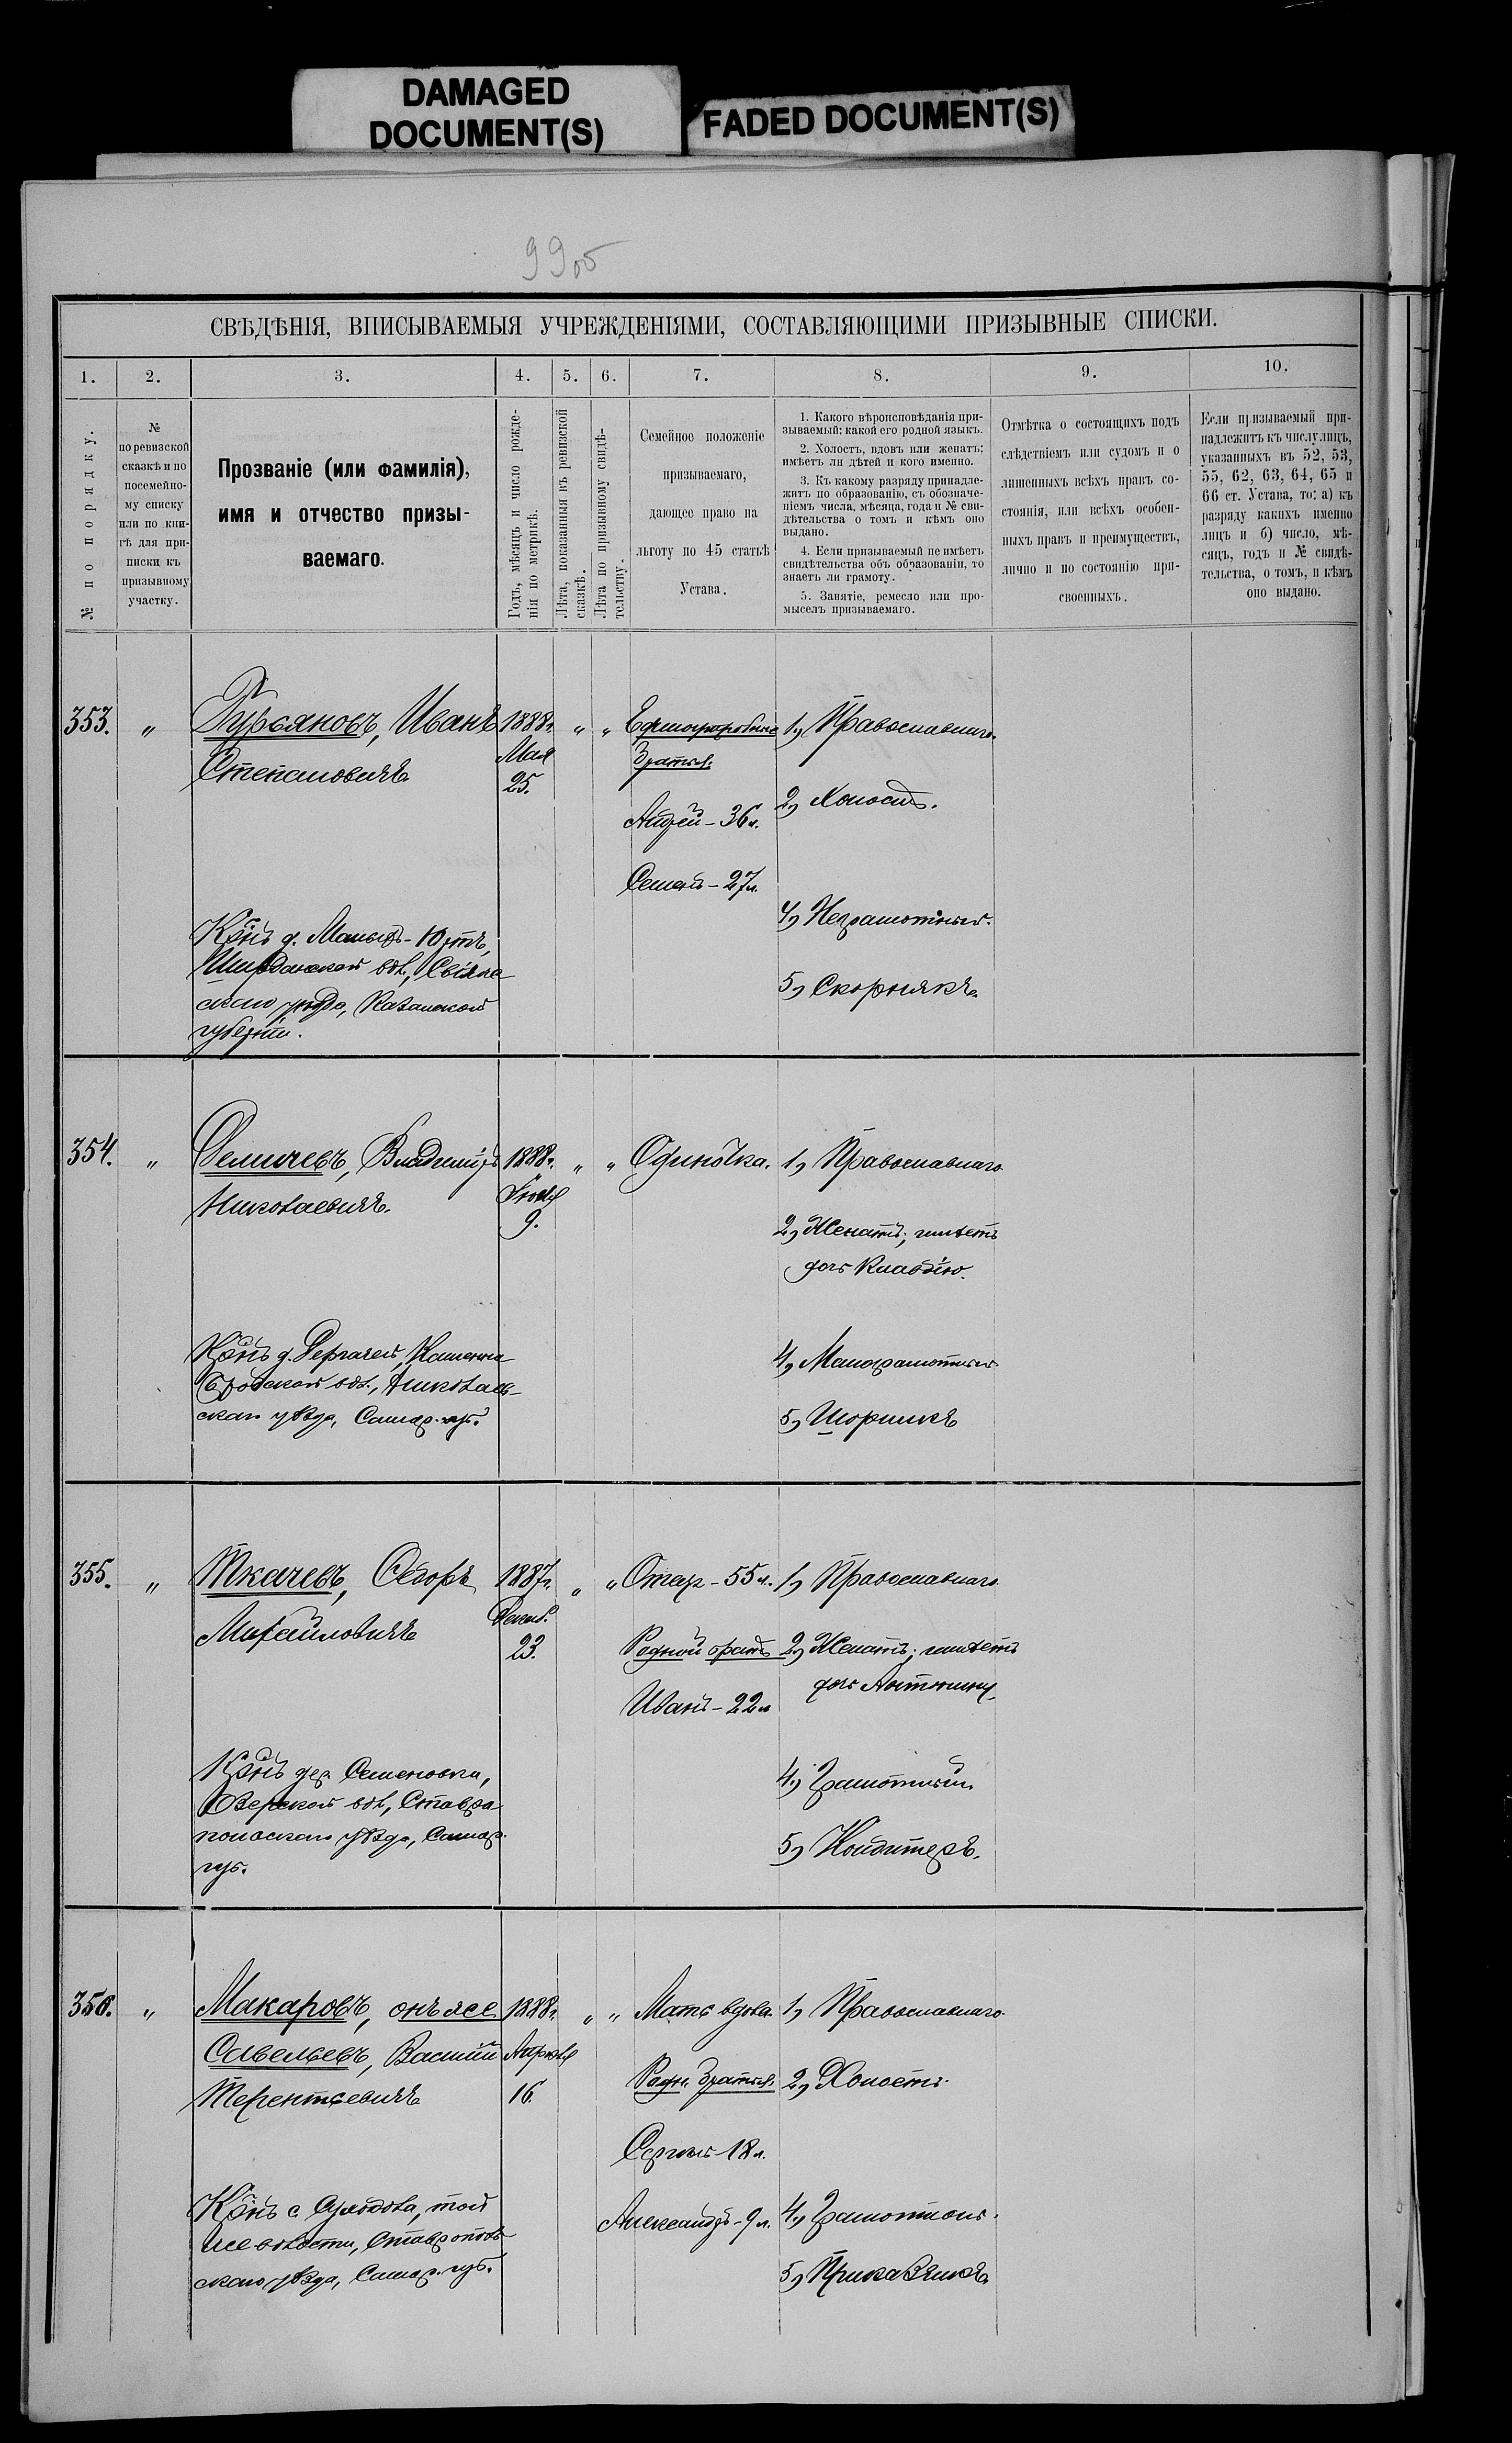 DAMAGED
DOCUMENT(S)
FADED DOCUMENT(S)
99об
СВѢДѢНІЯ, ВПИСЫВАЕМЫЯ УЧРЕЖДЕНІЯМИ, СОСТАВЛЯЮЩИМИ ПРИЗЫВНЫЕ СПИСКИ.
1. 2. 3. 4. 5. 6. 7. 8. 9. 10.
№ по порядку.
№
по ревизской
сказкѣ и по
посемейно-
му списку
или по кни-
гѣ для при-
писки къ
призывному
участку.
Прозваніе (или фамилія),
имя и отчество призы-
ваемаго.
Годъ, мѣсяцъ и число рожде-
нія по метрикѣ.
Лѣта, показанныя въ ревизской
сказкѣ.
Лѣта по призывному свидѣ-
тельству.
Семейное положеніе
призываемаго,
дающее право на
льготу по 45 статьѣ
Устава.
1. Какого вѣроисповѣданія при-
зываемый; какой его родной языкъ.
2. Холостъ, вдовъ или женатъ;
имѣетъ ли дѣтей и кого именно.
3. Къ какому разряду принадле-
житъ по образованію, съ обозначе-
ніемъ числа, мѣсяца, года и № сви-
дѣтельства о томъ и кѣмъ оно
выдано.
4. Если призываемый не имѣетъ
свидѣтельства объ образованіи, то
знаетъ ли грамоту.
5. Занятіе, ремесло или про-
мыселъ призываемаго.
Отмѣтка о состоящихъ подъ
слѣдствіемъ или судомъ и о
лишенныхъ всѣхъ правъ со-
стоянія, или всѣхъ особен-
ныхъ правъ и преимуществъ,
лично и по состоянію при-
своенныхъ.
Если призываемый при-
надлежитъ къ числу лицъ,
указанныхъ въ 52, 53,
55, 62, 63, 64, 65 и
66 ст. Устава, то: а) къ
разряду какихъ именно
лицъ и б) число, мѣ-
сяцъ, годъ и № свидѣ-
тельства, о томъ, и кѣмъ
оно выдано.
353. "
Гурьяновъ, Иванъ
Степановичъ
Кр-нъ д.
вол., Свіяж
скаго уѣзда, Казанской
губерніи.
1888г.
Мая
25.
" "
Единоутробные
братья:
Андрей - 36 л.
Семенъ - 27 л.
1, Православнаго.
2, Холостъ.
4, Неграмотный.
5, Скорнякъ.
354. "
Владиміръ
Николаевичъ.
Кр-нъ д. Каменно
Бродской вол., Николаев-
скаго уѣзда, Самар. губ.
1888г.
9.
" "
Одиночка.
1, Православнаго
2, Женатъ; имѣетъ
дочь Клавдію.
4, Малограмотный
5, Шорникъ
355. "
Ткачевъ, Ѳедоръ
Михайловичъ
Кр-нъ дер. Семеновки,
Озерской вол., Ставро
польскаго уѣзда, Самар.
губ.
1887г.
Декаб.
23.
" "
Отецъ - 55 л.
Родной братъ
Иванъ - 22 л
1, Православнаго
2, Женатъ; имѣетъ
дочь Антонину.
4, Грамотный.
5, Кондитеръ.
356. "
Макаровъ, онъ же
Савельевъ, Василій
Терентьевичъ
Кр-нъ с. той
же волости, Ставрополь
скаго уѣзда, Самар. губ.
1888г.
Апрѣля
16.
" "
Мать вдова.
Родн. братья:
Сергѣй - 18 л.
Александръ - 9 л.
1, Православнаго
2, Холостъ.
4, Грамотный.
5, Приказчикъ.